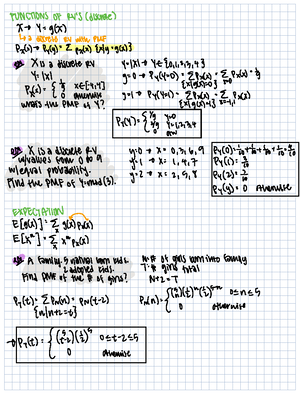 FUNCTIONS OF RV'S (discrete)
X → Y = g(X)
↳ a discrete RV with PMF
Px(x) → Py(y) = Σ Px(x) {x|y=g(x)}
ex X is a discrete RV
Y=|X|
Px(x) = { 1/9 x∈[-4,4]
0 otherwise
what's the PMF of Y?
Y=|X| → Y∈{0,1,2,3,4}
y=0 → Py(Y=0) = Σ Px(x) = Σ Px(0) = 1/9
{x|g(x)=0} x=0
y=1 → Py(Y=1) = Σ Px(x) = Σ Px(x)
{x|g(x)=1} x=-1,1
Py(Y) = { 1/9 y=0
2/9 y=1,2,3,4
0 otherwise
ex X is a discrete RV
w/values from 0 to 9
w/equal probability.
Find the PMF of Y=mod(3).
y=0 → X= 0,3,6,9
y=1 → X= 1,4,7
y=2 → X= 2,5,8
Py(0) = 1/10+1/10+1/10+1/10 = 4/10
Py(1) = 3/10
Py(2) = 3/10
Py(y) = 0 otherwise
EXPECTATION
E[g(x)] = Σ g(x) Px(x)
E[x^n] = Σ x^n Px(x)
ex A family, 5 natural born kids.
2 adopted girls.
Find PMF of the # of girls?
N: # of girls born into family
T: # girls total
N+2=T
Pt(t) = Σ Pn(n) = Pn(t-2)
{n|n+2=t}
Pn(n) = { (5 n)(1/2)^n(1/2)^5-n 0≤n≤5
0 otherwise
→ Pt(t) = { (5 t-2)(1/2)^5 0≤t-2≤5
0 otherwise